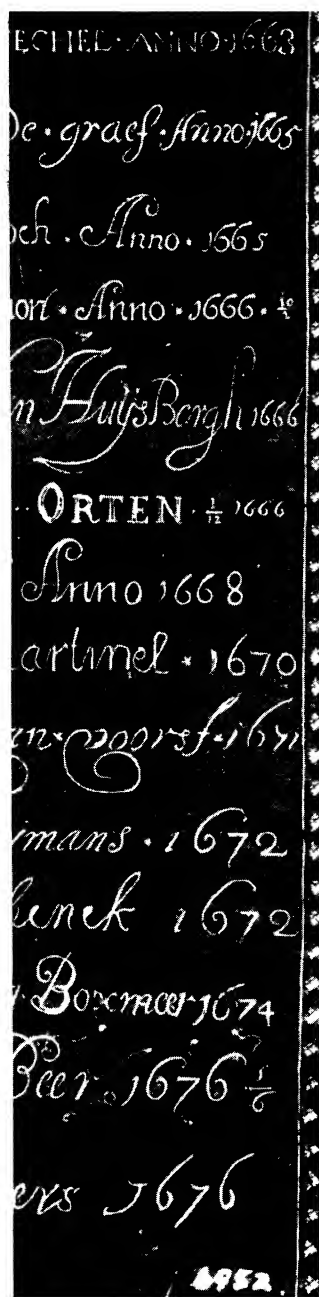 ECHEL · ANNO · 1663
De · graef · Anno · 1665
och · Anno · 1665
on · Anno · 1666 ·
n HuijsBergh 1666
ORTEN · 1/12 1666
Anno 1668
artinel * 1670
an · 1671
mans · 1672
benek 1672
Boxmeer 1674
Beer 1676 1/6
ers 1676
6952